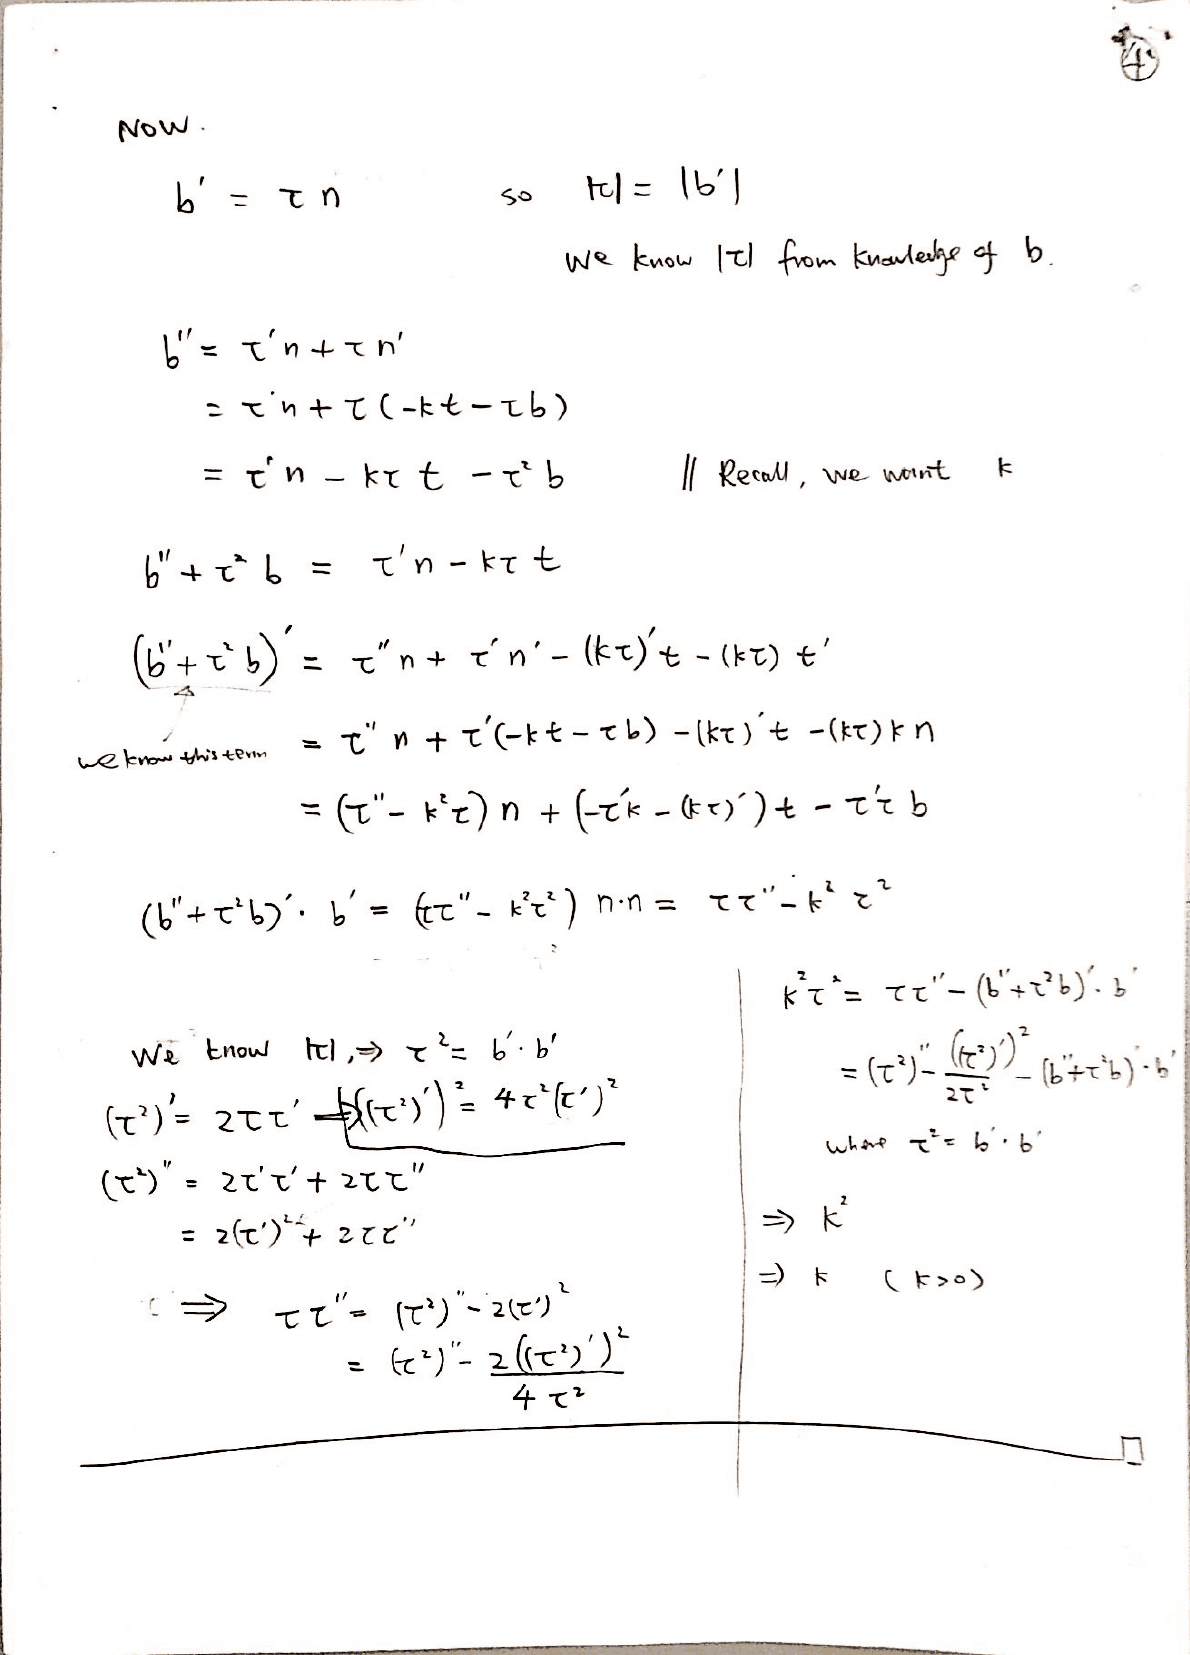 4
NOW.
b' = τ n so |τ| = |b'|
We know |τ| from knowledge of b.
b'' = τ'n + τ n'
= τ'n + τ(-kt - τb)
= τ'n - kτ t - τ² b // Recall, we want k
b'' + τ² b = τ'n - kτ t
(b'' + τ² b)' = τ'' n + τ' n' - (kτ)' t - (kτ) t'
we know this term = τ'' n + τ'(-kt - τb) - (kτ)' t - (kτ) k n
= (τ'' - k²τ) n + (-τ'k - (kτ)') t - τ'τ b
(b'' + τ²b)' · b' = (ττ'' - k²τ²) n·n = ττ'' - k² τ²
We know |τ|, ⇒ τ² = b'·b'
(τ²)' = 2ττ' ⇒ ((τ²)')² = 4τ²(τ')²
(τ²)'' = 2τ'τ' + 2ττ''
= 2(τ')² + 2ττ''
⇒ ττ'' = (τ²)'' - 2(τ')²
= (τ²)'' - 2((τ²)')²
4 τ²
k²τ² = ττ'' - (b'' + τ²b)'·b'
= (τ²)'' - ((τ²)')² / 2τ² - (b'' + τ²b)'·b'
where τ² = b'·b'
⇒ k²
⇒ k (k>0)
□